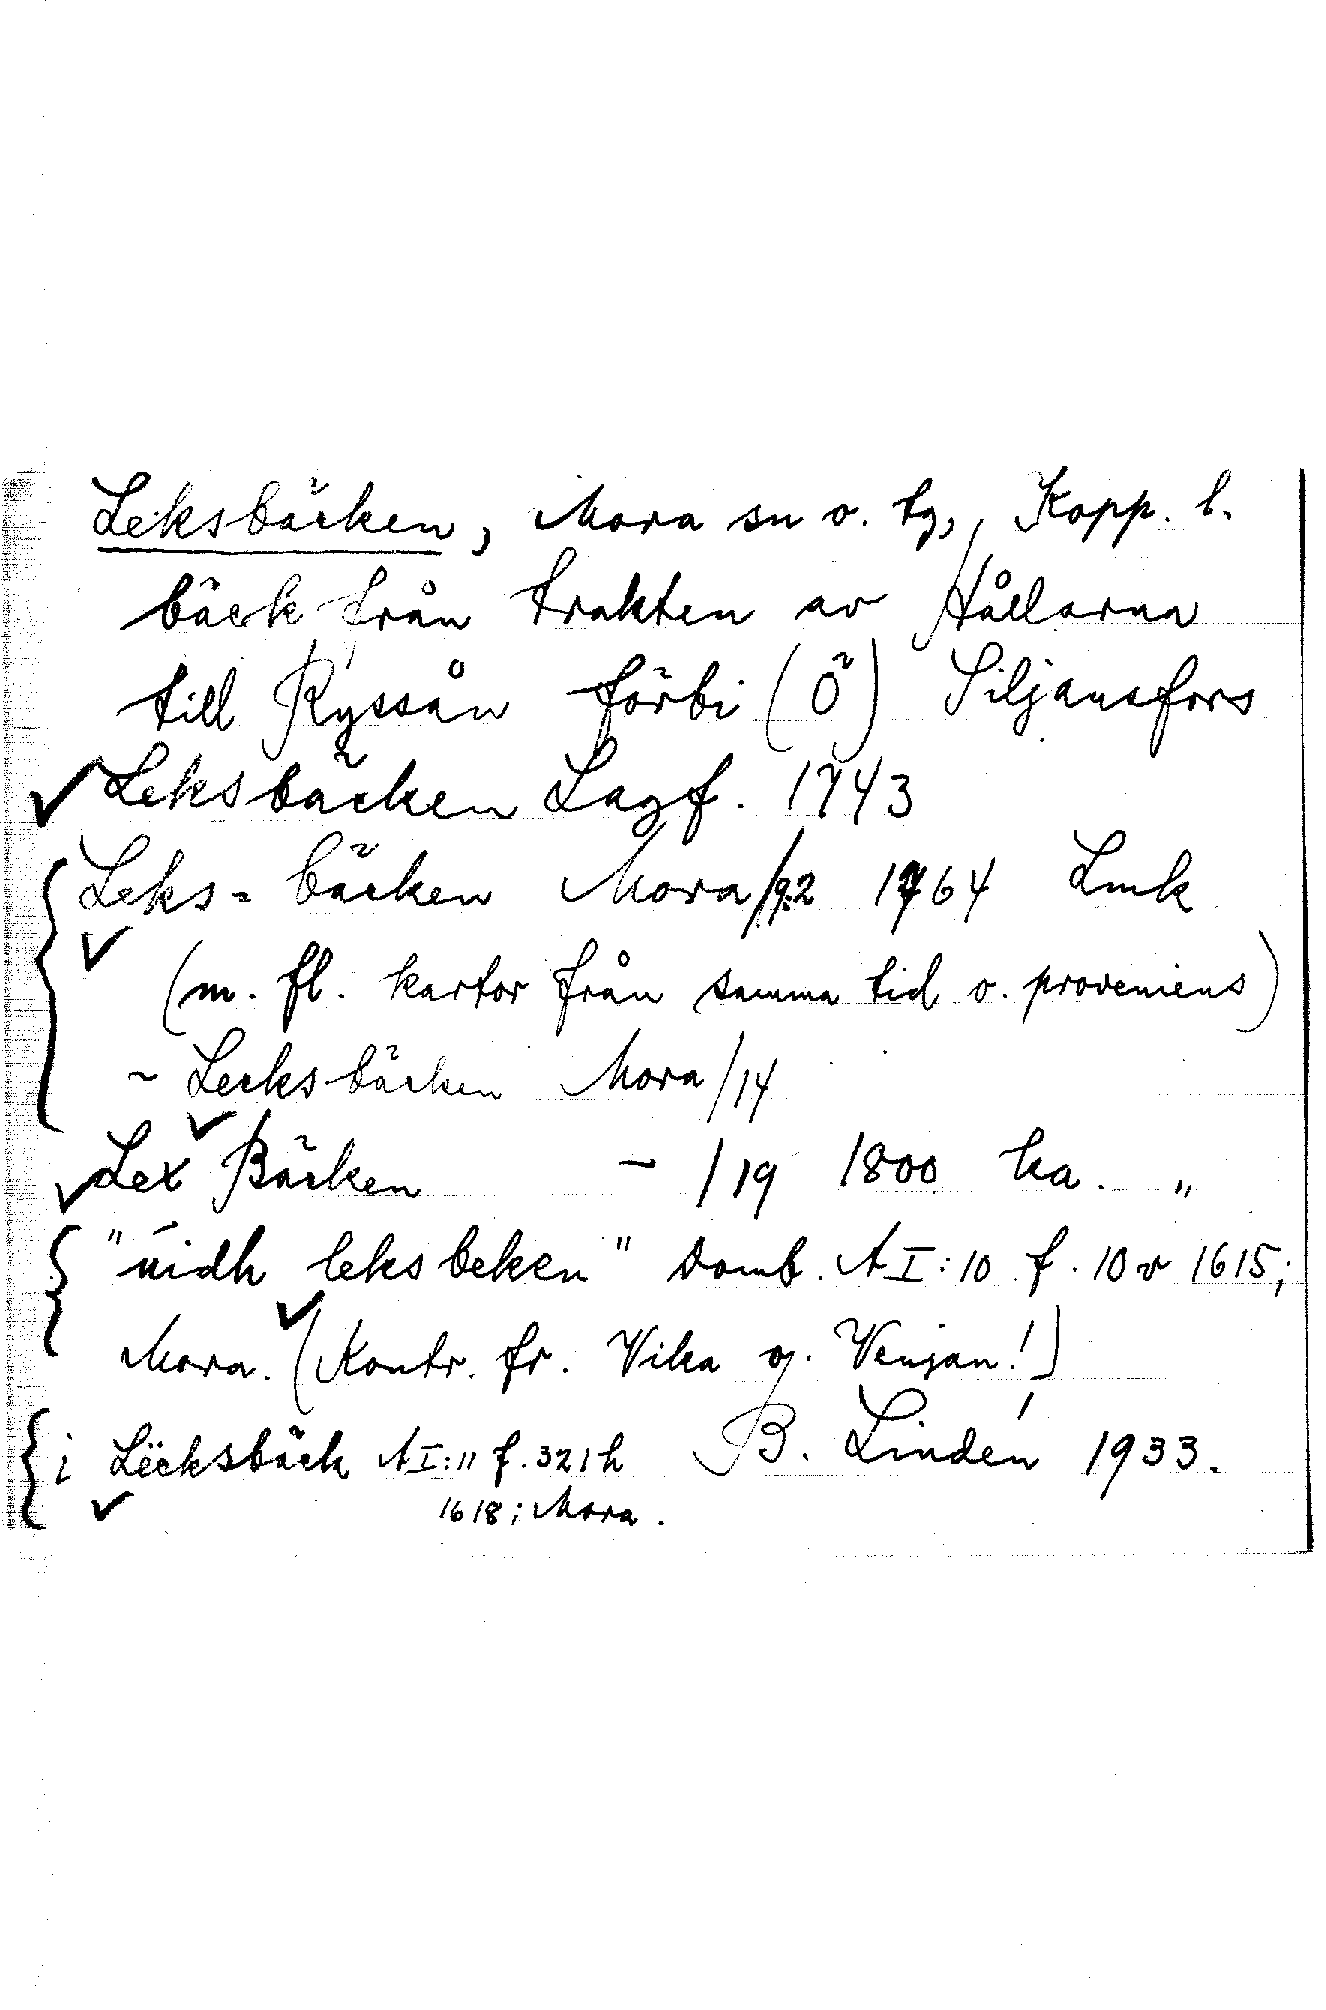 Leksbäcken, Mora sn o. tg., Kopp. l.
bäck från trakten av Hållarna
till Ryssån förbi (Ö) Siljansfors
✓ Leksbäcken Lagf. 1743
Leks = bäcken Mora/92 1764 Lmk
✓ (m. fl. kartor från samma tid o. proveniens)
~ Lecksbäcken Mora/14
✓ Lex Bäcken — /19 1800 ka. "
"uidh leksbeken" Domb. A I:10 f. 10 v 1615;
Mora. (Kontr. fr. Vika o. Venjan!)
i Lëcksbäck A I:11 f. 321 h B. Lindén 1933.
1618; Mora.